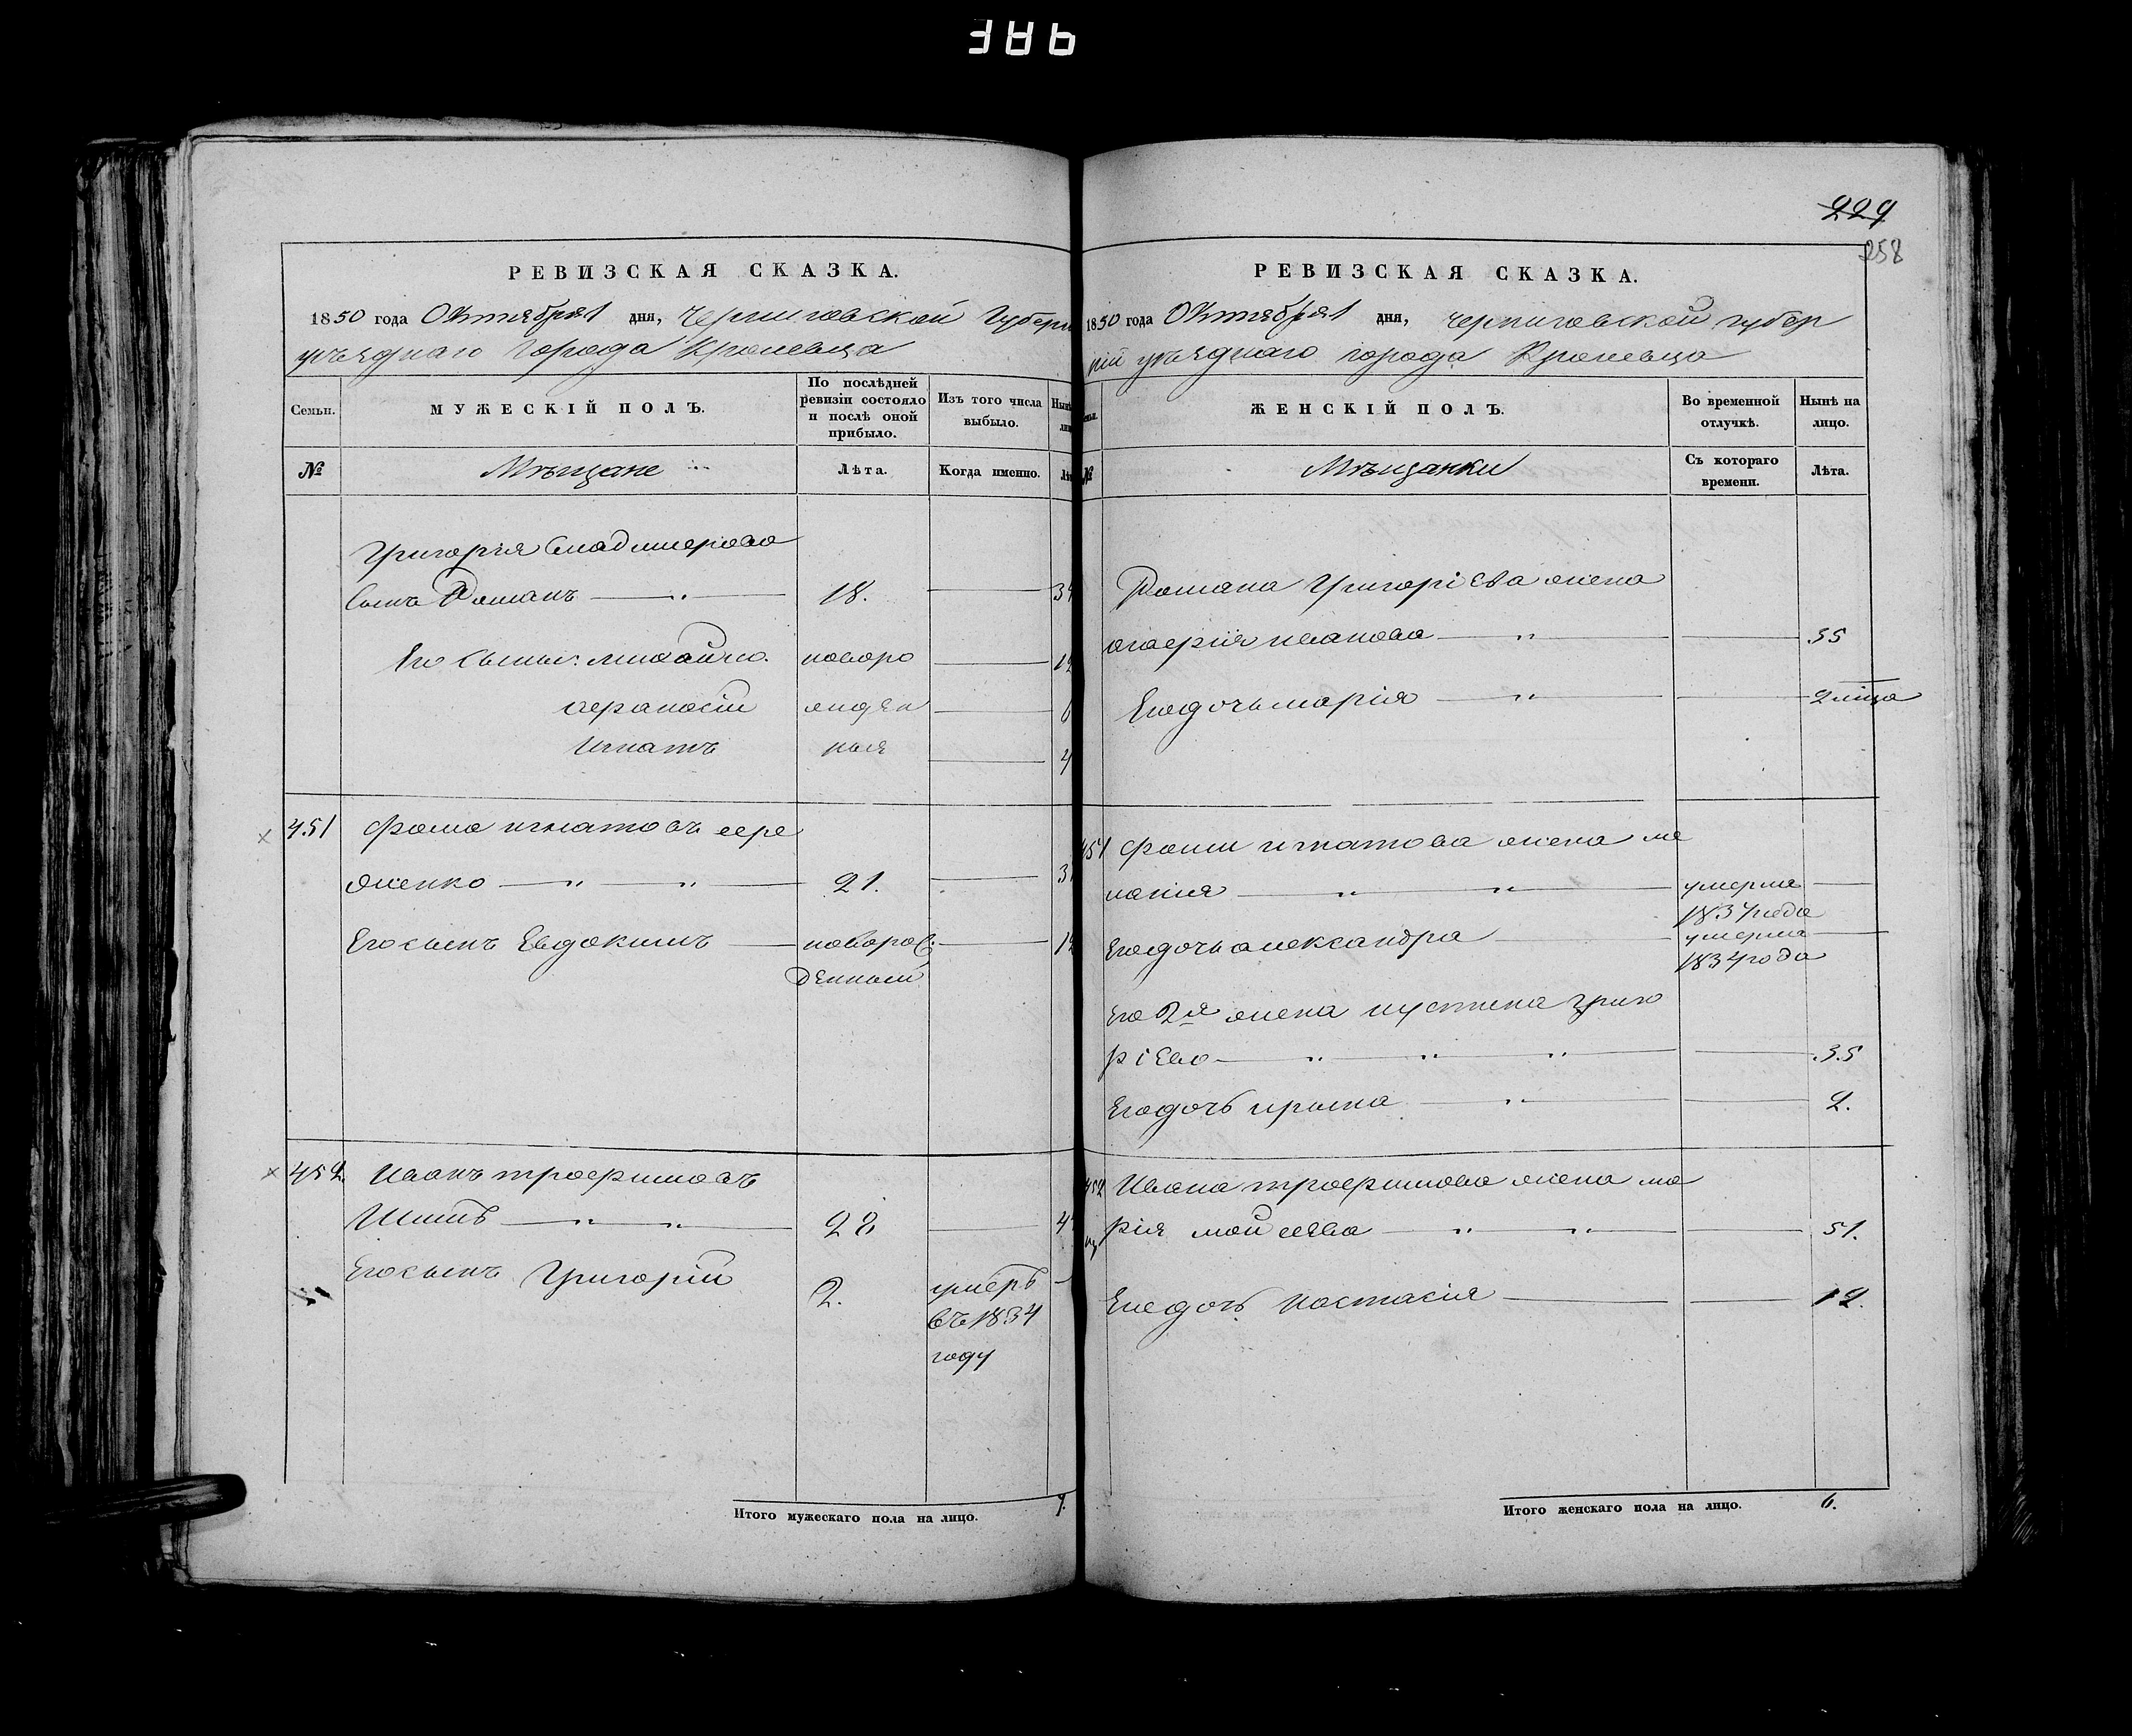 386
РЕВИЗСКАЯ СКАЗКА.
1850 года Октября 1 дня, Черниговской Губерн
уѣзднаго Города Кролевца
Семьи.
МУЖЕСКІЙ ПОЛЪ.
По послѣдней ревизіи состояло и послѣ оной прибыло.
Изъ того числа выбыло.
№
Мѣщане
Лѣта.
Когда именно.
Григорія Владимерова
Сынъ Романъ 18.
Его Сыны: михайло. новоро
афанасій жден
Игнатъ ныя 4
451 Фома игнатовъ
женко 21.
Его сынъ Евдокимъ новорож
денный
452. Иванъ трофимовъ
Шить 28
Его сынъ Григорій 2. умеръ
въ 1834
году
7.
Итого мужескаго пола на лицо.
229
258
РЕВИЗСКАЯ СКАЗКА.
1850 года Октября 1 дня, черниговской губер
ніи уѣзднаго города Кролевца
ЖЕНСКІЙ ПОЛЪ.
Во временной отлучкѣ.
Нынѣ на лицо.
№
Мѣщанки
Съ котораго времени.
Лѣта.
Романа Григоріева жена
иванова 35
Его дочь марія
451 Фоми игнатова жена ме
ланія умерла
1834 года
Его дочь александра умерла
1834 года
Его 2я жена иустина григо
ріева 35
Его дочь ирына 2.
452 Ивана трофимова жена ма
рія мойсеева 51.
Его дочь настасія 12.
6.
Итого женскаго пола на лицо.